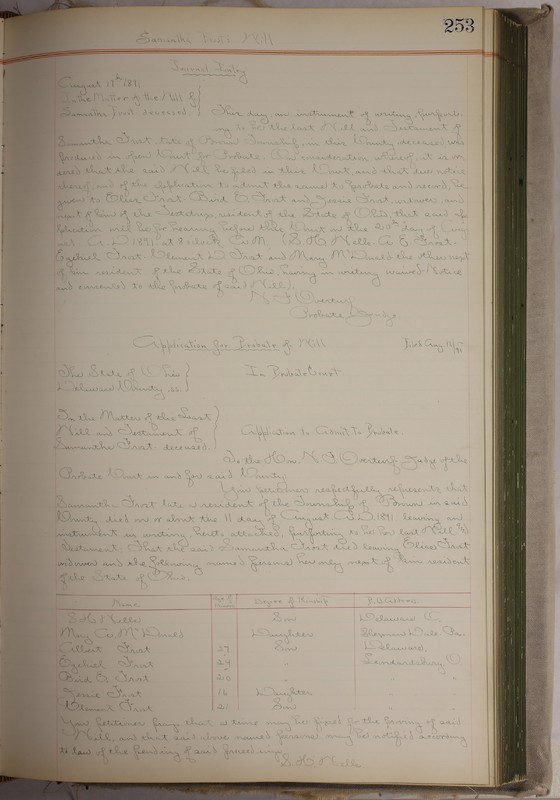 253
Samantha Trost's Will
Journal Entry
August 17th 1891
In the Matter of the Will of
Samantha Trost deceased.
This day an instrument of writing purport-
ing to be the last Will and Testament of
Samantha Trost, late of Township, in this County, deceased was
produced in open Court for Probate. consideration whereof, it is or
dered that the said Will be filed in this Court, and that due notice
thereof, and of the application to admit the same to probate and record, be
given to Trost, Bird E Trost and Jessie Trost widower, and
next of kin of the Testatrix, resident of the State of Ohio, that said ap
plication will be for hearing before this Court on the 20th day of Aug
ust A.D. 1891, at o'clock A.M. S. H. Kells. A. E. Trost.
Ezekiel Trost. Clement D Trost and Mary McDonald the other next
of kin resident of the State of Ohio having in writing waived Notice
and consented to the probate of said Will.
Probate Judge.
Application for Probate of Will
Filed Aug 17/91
The State of Ohio
Delaware County, ss.
In Probate Court
In the Matter of the Last
Will and Testament of
Samantha Trost deceased.
Application to Admit To Probate.
To the Hon. Judge of the
Probate Court in and for said County
Your petitioner respectfully represents that
Samantha Trost late a resident of the Township of in said
County, died on or about the 11 day of August, A.D. 1891 leaving an
instrument in writing, hereto attached, purporting to be her last Will &
Testament. That the said Samantha Trost died leaving Trost
widower and the following named persons her only next of kin resident
of the State of Ohio.
Name
Age of Minors
Degree of Kinship
P.O. Address
S. H. Kells Son Delaware O.
Mary A. McDonald Daughter
Albert Trost 27 Son Delaware,
Ezekiel Trost 24 "
Bird E Trost 20 " " "
Jessie Trost 16 Daughter " "
Clement Trost 21 Son " "
Your petitioner prays that a time may be fixed for the proving of said
Will, and that said above named persons may be notified according
to law of the pendency of said proceedings.
S. H. Kells